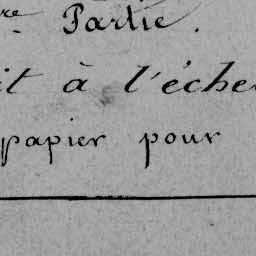 re Partie.
it à l'éche
papier pour